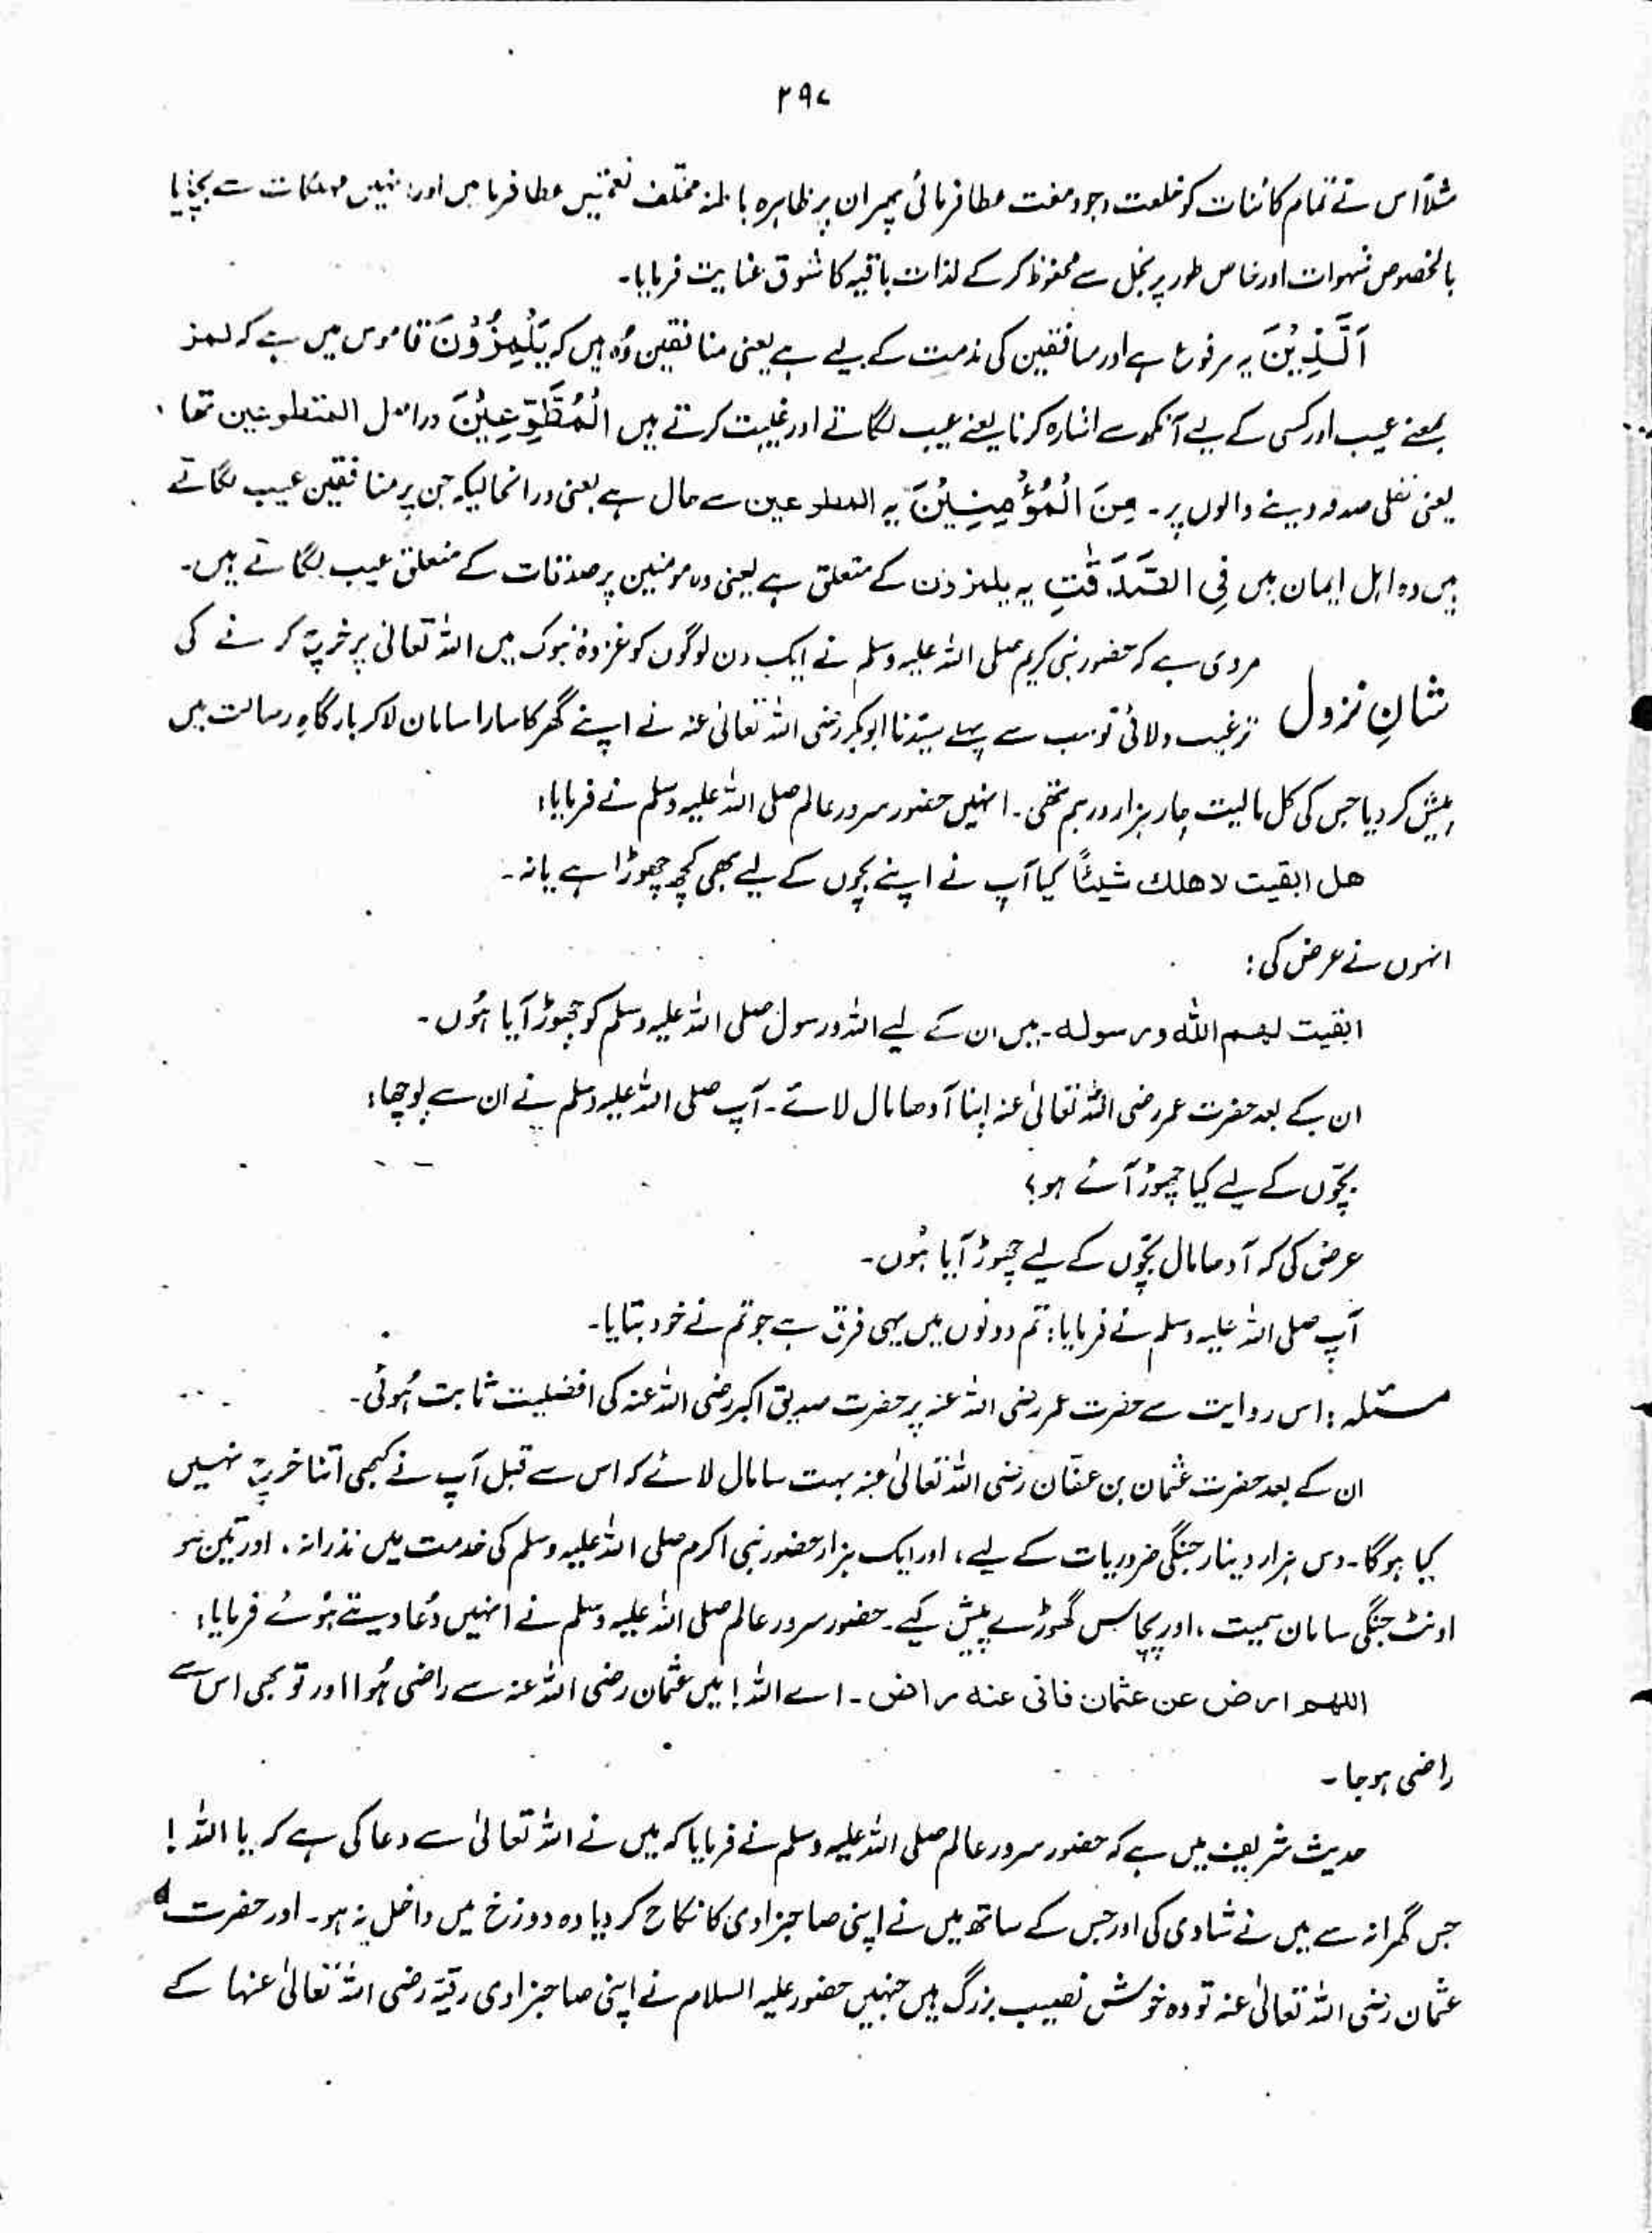 ۲۹۷
مثلاً اس نے تمام کائنات کو خلعت وجود مفت عطا فرمائی پھر ان پر ظاہرہ باطنہ مختلف نعمتیں عطا فرمائیں اور انہیں مہلکات سے بچایا
بالخصوص شہوات اور خاص طور پر بخل سے محفوظ کر کے لذات باقیہ کا شوق عنایت فرمایا۔
اَلَّذِیْنَ یہ مرفوع ہے اور منافقین کی مذمت کے لیے ہے یعنی منافقین وُہ ہیں کہ یَلْمِزُوْنَ قاموس میں ہے کہ لمز
بمعنے عیب اور کسی کے لیے آنکھ سے اشارہ کرنا یعنے عیب لگاتے اور غیبت کرتے ہیں الْمُطَّوِّعِیْنَ دراصل المتطوعین تھا،
یعنی نفلی صدقہ دینے والوں پر۔ مِنَ الْمُؤْمِنِیْنَ یہ المطوعین سے حال ہے یعنی درانحالیکہ جن پر منافقین عیب لگاتے
ہیں وہ اہل ایمان ہیں فِی الصَّدَقٰتِ یہ یلمزوٰن کے متعلق ہے یعنی وہ مومنین پر صدقات کے متعلق عیب لگاتے ہیں۔
شانِ نزول مروی ہے کہ حضور نبی کریم صلی اللہ علیہ وسلم نے ایک دن لوگوں کو غزوۂ تبوک میں اللہ تعالیٰ پر خرچ کرنے کی
ترغیب دلائی تو سب سے پہلے سیّدنا ابوبکر رضی اللہ تعالیٰ عنہ نے اپنے گھر کا سارا سامان لا کر بارگاہِ رسالت میں
پیش کر دیا جس کی کل مالیت چار ہزار درہم تھی۔ انہیں حضور سرور عالم صلی اللہ علیہ وسلم نے فرمایا:
ھل ابقیت لاھلك شیئًا کیا آپ نے اپنے بچوں کے لیے بھی کچھ چھوڑا ہے یا نہ۔
انہوں نے عرض کی:
ابقیت لھم اللہ ورسولہ۔ میں ان کے لیے اللہ و رسول صلی اللہ علیہ وسلم کو چھوڑ آیا ہُوں۔
ان کے بعد حضرت عمر رضی اللہ تعالیٰ عنہ اپنا آدھا مال لائے۔ آپ صلی اللہ علیہ وسلم نے ان سے پوچھا:
بچّوں کے لیے کیا چھوڑ آئے ہو؟
عرض کی کہ آدھا مال بچّوں کے لیے چھوڑ آیا ہُوں۔
آپ صلی اللہ علیہ وسلم نے فرمایا: تم دونوں میں یہی فرق ہے جو تم نے خود بتایا۔
مسئلہ: اس روایت سے حضرت عمر رضی اللہ عنہ پر حضرت صدیق اکبر رضی اللہ عنہ کی افضلیت ثابت ہُوئی۔
ان کے بعد حضرت عثمان بن عفّان رضی اللہ تعالیٰ عنہ بہت سا مال لائے کہ اس سے قبل آپ نے کبھی اتنا خرچ نہیں
کیا ہوگا۔ دس ہزار دینار جنگی ضروریات کے لیے، اور ایک ہزار حضور نبی اکرم صلی اللہ علیہ وسلم کی خدمت میں نذرانہ، اور تین سو
اونٹ جنگی سامان سمیت، اور پچاس گھوڑے پیش کیے۔ حضور سرور عالم صلی اللہ علیہ وسلم نے انہیں دُعا دیتے ہوُئے فرمایا:
اللھم ارض عن عثمان فانی عنه راض۔ اے اللہ! میں عثمان رضی اللہ عنہ سے راضی ہُوا اور تو بھی اس سے
راضی ہو جا۔
حدیث شریف میں ہے کہ حضور سرور عالم صلی اللہ علیہ وسلم نے فرمایا کہ میں نے اللہ تعالیٰ سے دعا کی ہے کہ یا اللہ!
جس گھرانہ سے میں نے شادی کی اور جس کے ساتھ میں نے اپنی صاحبزادی کا نکاح کر دیا وہ دوزخ میں داخل نہ ہو۔ اور حضرت
عثمان رضی اللہ تعالیٰ عنہ تو وہ خوش نصیب بزرگ ہیں جنہیں حضور علیہ السلام نے اپنی صاحبزادی رقیّہ رضی اللہ تعالیٰ عنہا کے